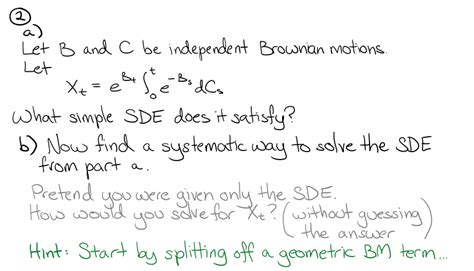 ②
a)
Let B and C be independent Brownian motions.
Let
X_t = e^{B_t} ∫_0^t e^{-B_s} dC_s
What simple SDE does it satisfy?
b) Now find a systematic way to solve the SDE
from part a.
Pretend you were given only the SDE.
How would you solve for X_t? (without guessing
the answer)
Hint: Start by splitting off a geometric BM term...